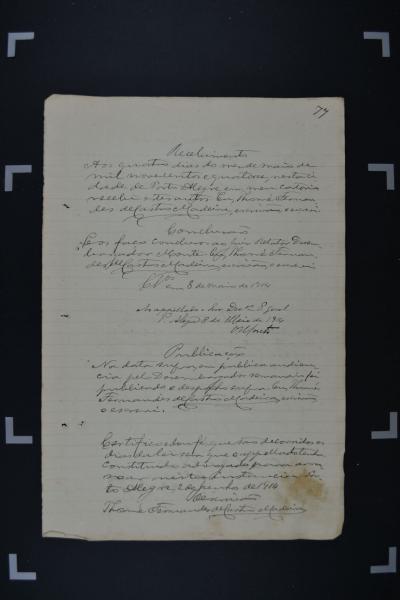 77
Recebimento
Aos quatro dias do mez de maio de
mil novecentos e quatorze, nesta ci
dade de Porto Alegre, em meu cartorio
recebi estes autos. Eu, Thomé Fernan
des de Castro Madeira, escrivão, escrevi.
Conclusão
E os faço conclusos ao Snr. Relator Des
embargador Eu, Thomé Fernan
des de Castro Madeira, escrivão, escrevi
Clos em 8 de maio de 1914
Ao appellado e Snr. Des.or P. geral
P. Alegre 8 de Maio de 1914
Publicação
Na data supra, em publica audien
cia pelo Desembargador semanario foi
publicado o despacho supra. Eu, Thomé
Fernandes de Castro Madeira, escrivão
o escrevi.
Certifico e dou fé que tas decorridos os
dias da lei sem que o appellado tenha
constituido advogado para arra
zoar nesta Instancia. Por
to Alegre, 2 de junho de 1914
O escrivão
Thomé Fernandes de Castro Madeira